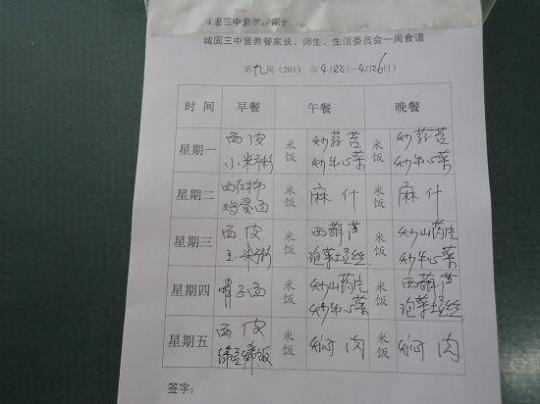 城固三中营养餐家长、师生、生活委员会一周食谱
第九周（2013 年4月22日—4月26日）
时间 早餐 午餐 晚餐
星期一 面皮 小米粥 米饭 炒蒜苔 炒包心菜 米饭 炒蒜苔 炒包心菜
星期二 西红柿 鸡蛋面 米饭 麻什 米饭 麻什
星期三 面皮 米粥 米饭 西葫芦 泡菜土豆丝 米饭 炒山药片 炒包心菜
星期四 臊子面 米饭 炒山药片 炒包心菜 米饭 西葫芦 泡菜土豆丝
星期五 面皮 绿豆稀饭 米饭 肉 米饭 肉
签字：